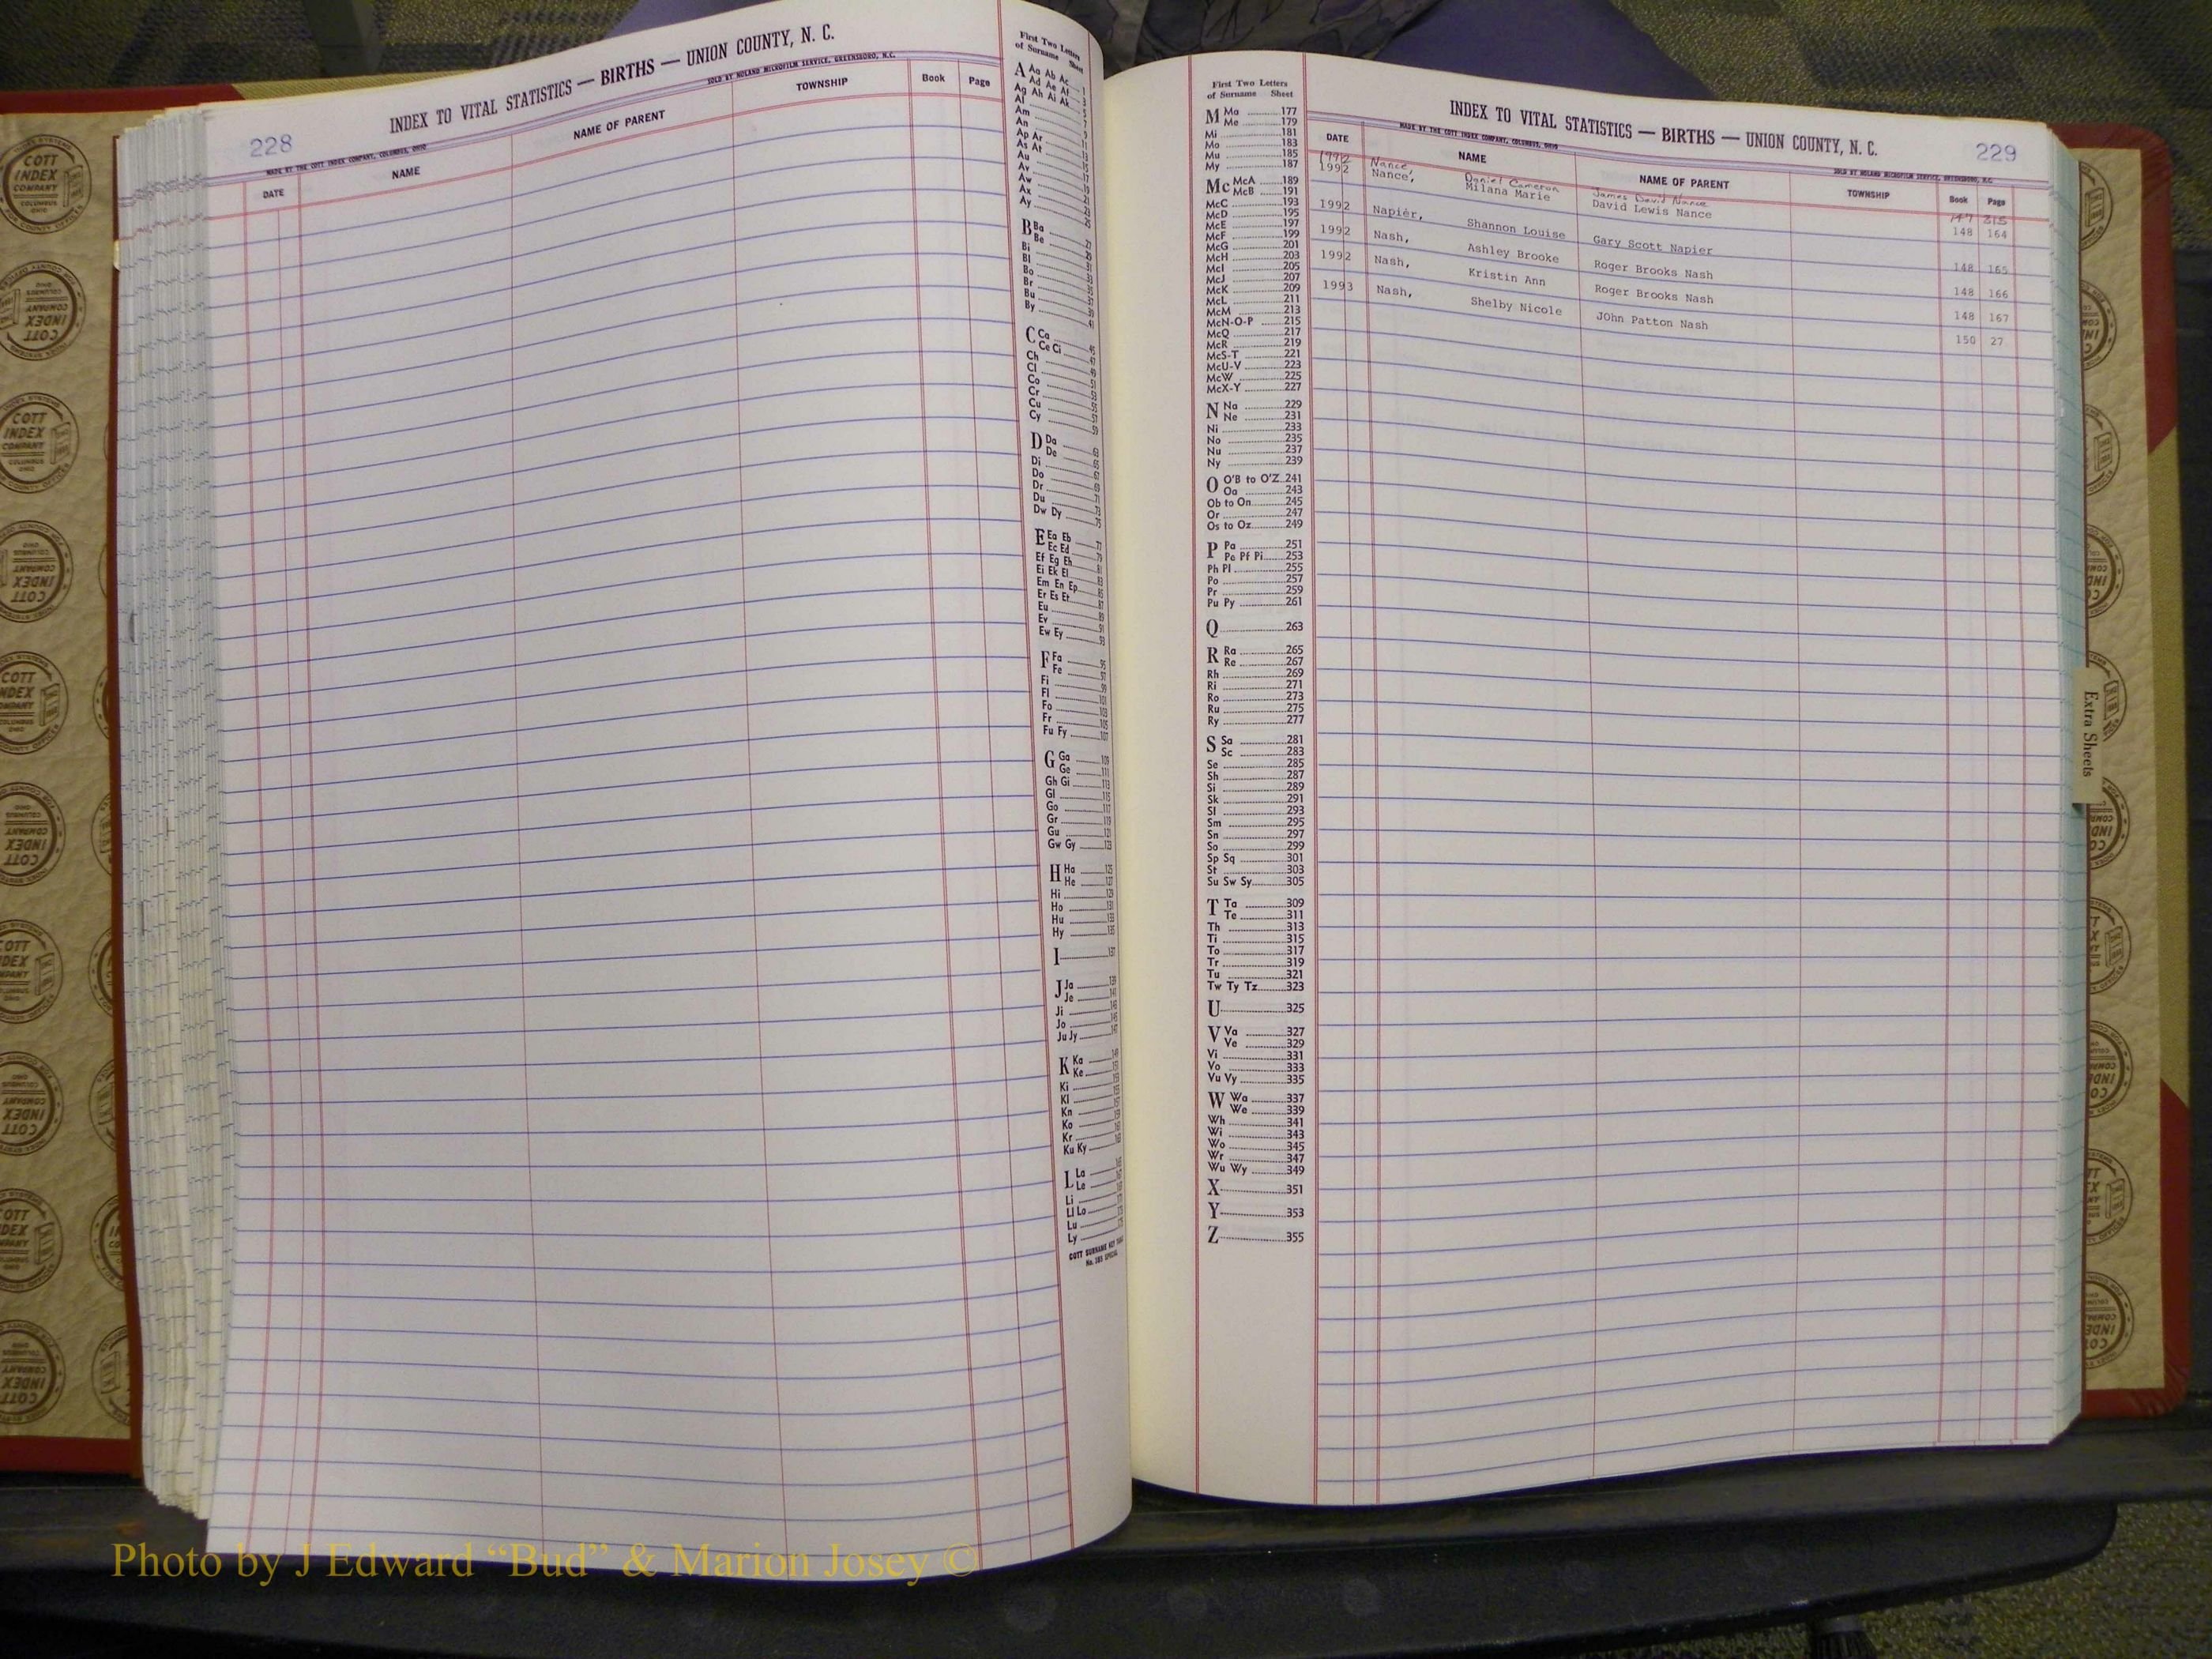 228
INDEX TO VITAL STATISTICS — BIRTHS — UNION COUNTY, N. C.
MADE BY THE COTT INDEX COMPANY, COLUMBUS, OHIO
SOLD BY NOLAND MICROFILM SERVICE, GREENSBORO, N.C.
DATE NAME NAME OF PARENT TOWNSHIP Book Page
First Two Letters
of Surname Sheet
A Aa Ab Ac
Ad Ae Af
Ag Ah Ai Ak
Al
Am
An
Ap Ar
As At
Au
Av
Aw
Ax
Ay
B Ba
Be
Bi
Bl
Bo
Br
Bu
By
C Ca
Ce Ci
Ch
Cl
Co
Cr
Cu
Cy
D Da
De
Di
Do
Dr
Du
Dw Dy
E Ea Eb
Ec Ed
Ef Eg Eh
Ei Ek El
Em En Ep
Er Es Et
Eu
Ev
Ew Ey
F Fa
Fe
Fi
Fl
Fo
Fr
Fu Fy
G Ga
Ge
Gh Gi
Gl
Go
Gr
Gu
Gw Gy
H Ha
He
Hi
Ho
Hu
Hy
I
J Ja
Je
Ji
Jo
Ju Jy
K Ka
Ke
Ki
Kl
Kn
Ko
Kr
Ku Ky
L La
Le
Li
Ll Lo
Lu
Ly
First Two Letters
of Surname Sheet
M Ma 177
Me 179
Mi 181
Mo 183
Mu 185
My 187
Mc McA 189
McB 191
McC 193
McD 195
McE 197
McF 199
McG 201
McH 203
McI 205
McJ 207
McK 209
McL 211
McM 213
McN-O-P 215
McQ 217
McR 219
McS-T 221
McU-V 223
McW 225
McX-Y 227
N Na 229
Ne 231
Ni 233
No 235
Nu 237
Ny 239
O O'B to O'Z 241
Oa 243
Ob to On 245
Or 247
Os to Oz 249
P Pa 251
Pe Pf Pi 253
Ph Pl 255
Po 257
Pr 259
Pu Py 261
Q 263
R Ra 265
Re 267
Rh 269
Ri 271
Ro 273
Ru 275
Ry 277
S Sa 281
Sc 283
Se 285
Sh 287
Si 289
Sk 291
Sl 293
Sm 295
Sn 297
So 299
Sp Sq 301
St 303
Su Sw Sy 305
T Ta 309
Te 311
Th 313
Ti 315
To 317
Tr 319
Tu 321
Tw Ty Tz 323
U 325
V Va 327
Ve 329
Vi 331
Vo 333
Vu Vy 335
W Wa 337
We 339
Wh 341
Wi 343
Wo 345
Wr 347
Wu Wy 349
X 351
Y 353
Z 355
INDEX TO VITAL STATISTICS — BIRTHS — UNION COUNTY, N. C.
229
MADE BY THE COTT INDEX COMPANY, COLUMBUS, OHIO
SOLD BY NOLAND MICROFILM SERVICE, GREENSBORO, N.C.
DATE NAME NAME OF PARENT TOWNSHIP Book Page
1992 Nance Daniel Cameron James David Nance 147 315
1992 Nance, Milana Marie David Lewis Nance 148 164
1992 Napier, Shannon Louise Gary Scott Napier 148 165
1992 Nash, Ashley Brooke Roger Brooks Nash 148 166
1992 Nash, Kristin Ann Roger Brooks Nash 148 167
1993 Nash, Shelby Nicole JOhn Patton Nash 150 27
Extra Sheets
COTT
INDEX
COMPANY
Photo by J Edward “Bud” & Marion Josey ©